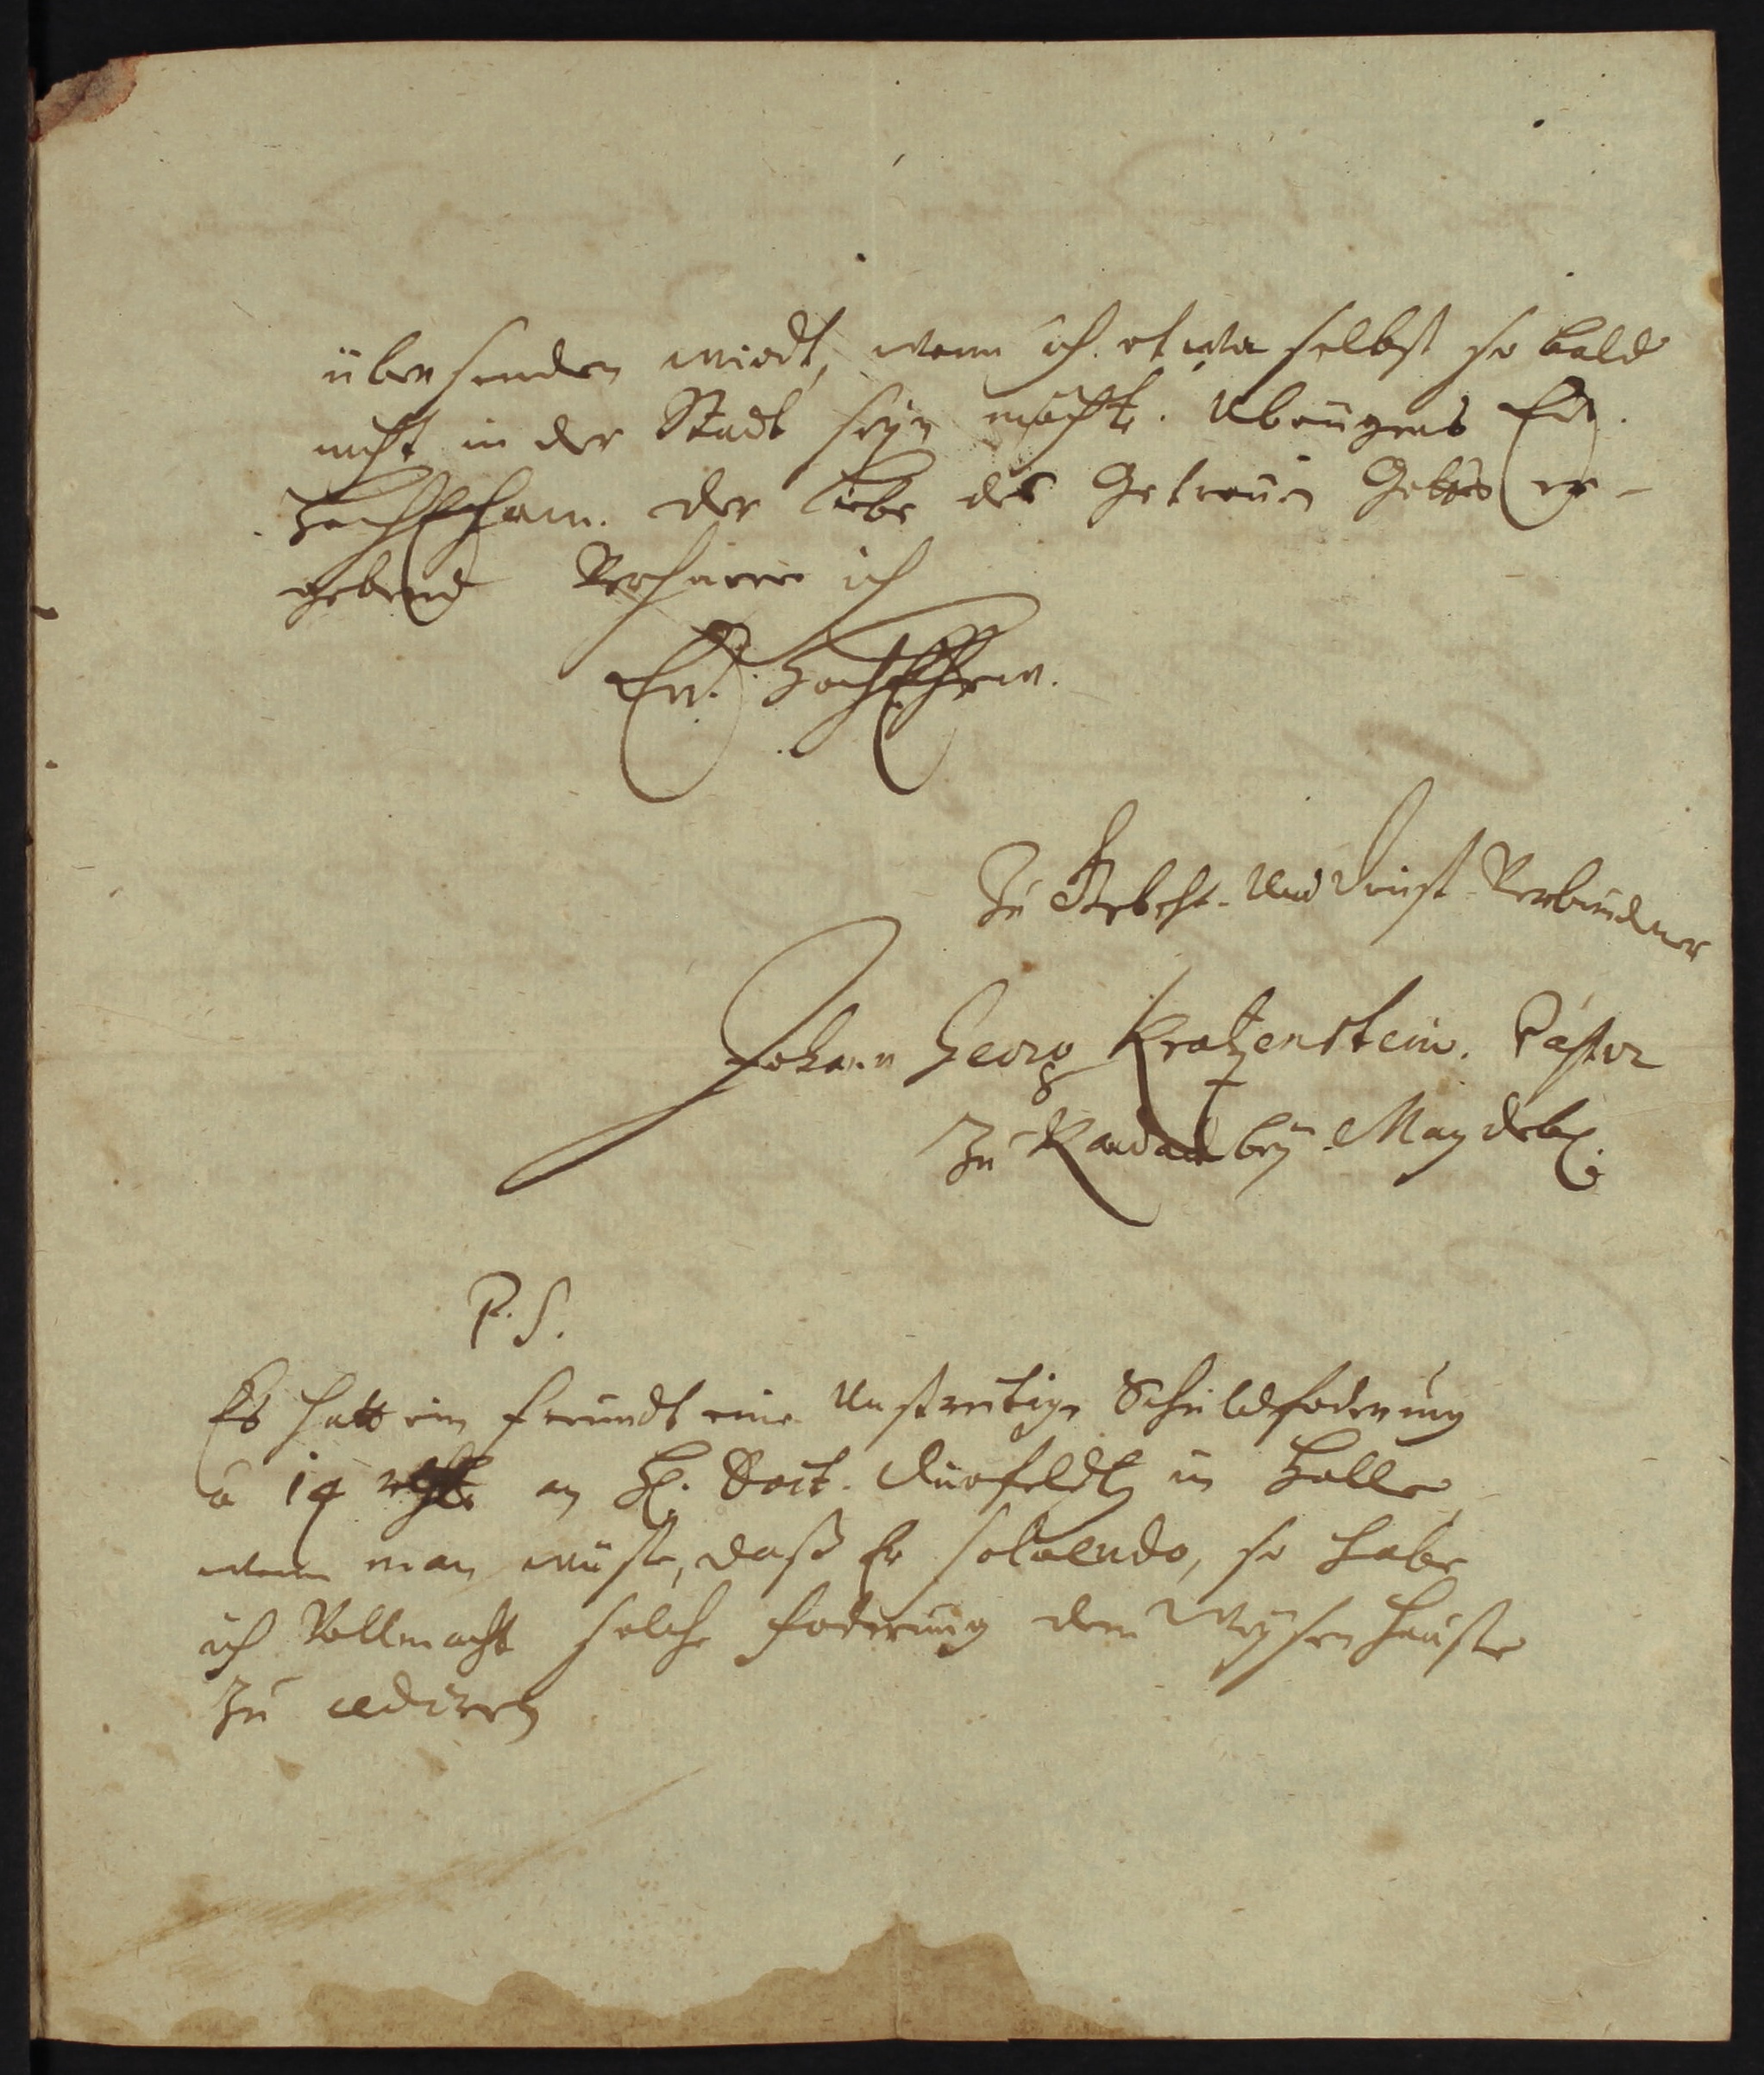 übersenden wirdt, wenn ich etwa selbst so bald
nicht in der Stadt seyn möchte. Ubrigens Ew.
HochEhrw. der Liebe des Getreuen Gottes er-
gebend Verharre ich
Ew. HochEhrw.
Zu Gebeht- Und Dienst-Verbundner
Johann Georg Kratzenstein. Pastor
Zu Randau bey Magdeb.
P. S.
Es hatt ein freundt eine Unstreitige Schuldfoderung
à 14 rthlr an H. Doct. in Halle
wenn man wüste, daß Er solvendo, so habe
ich Vollmacht solche foderung dem Weysenhause
Zu cediren